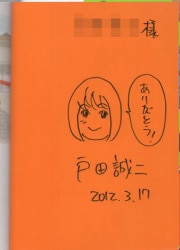 様
ありがとう!
戸田誠二
2012.3.17